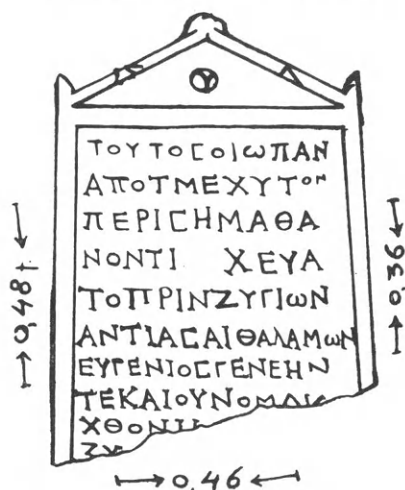 ΤΟΥΤΟϹΟΙωΠΑΝ
ΑΠΟΤΜΕΧΥΤΟΝ
ΠΕΡΙϹΗΜΑΘΑ
ΝΟΝΤΙ ΧΕΥΑ
ΤΟΠΡΙΝΖΥΓΙωΝ
ΑΝΤΙΑϹΑΙΘΑΛΑΜωΝ
ΕΥΓΕΝΙΟϹΓΕΝΕΗΝ
ΤΕΚΑΙΟΥΝΟΜΑ
ΧΘΟΝΙ
ΖΥ
0,48†
0,36
0,46